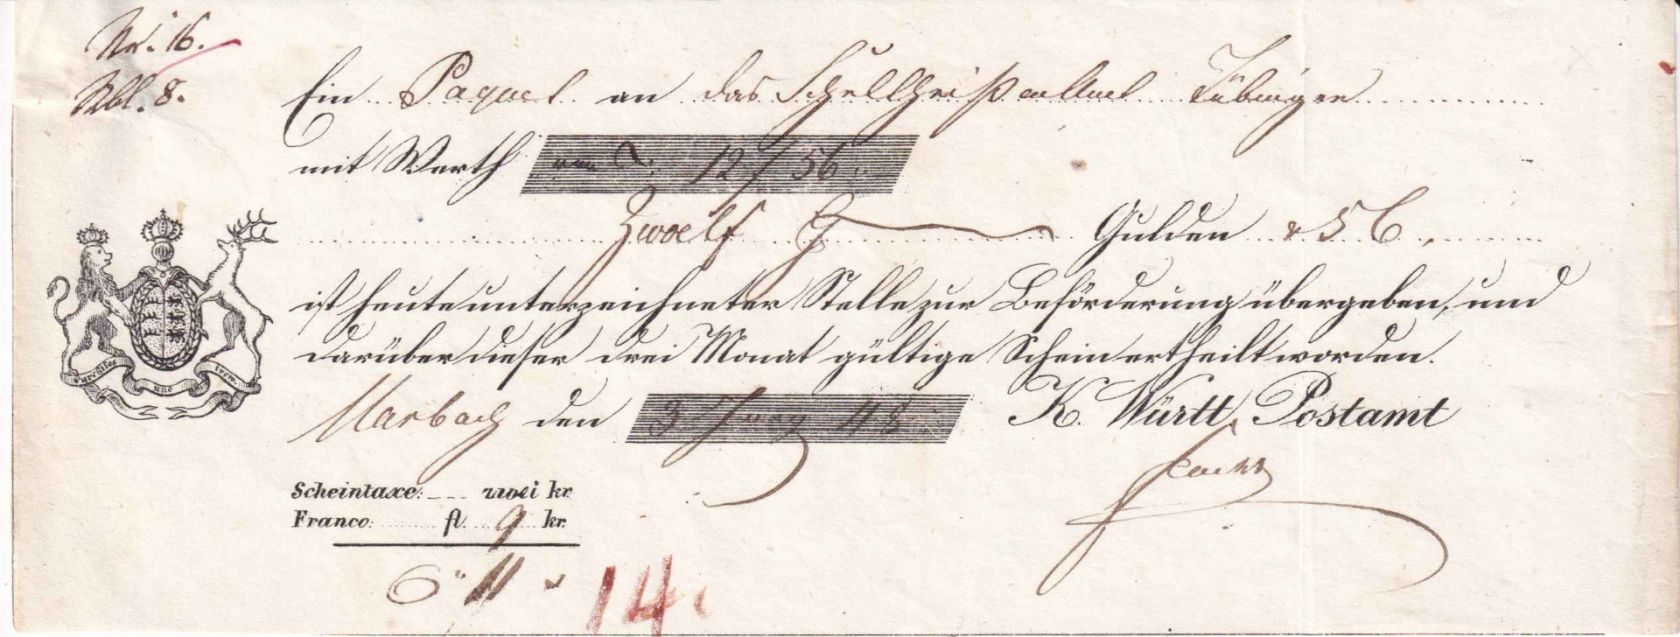 Nr. 16.
Abl. 8.
Ein Paquet an das Schultheißenamt Tübingen
mit Werth 12 / 56
Zwoelf Gulden & 56
ist heute unterzeichneter Stelle zur Beförderung übergeben, und
darüber dieser drei Monat gültige Schein ertheilt worden.
Marbach den 3 48 K. Württ. Postamt
furchtlos und trew
Scheintaxe: zwei kr.
Franco: fl. 9 kr.
11
14